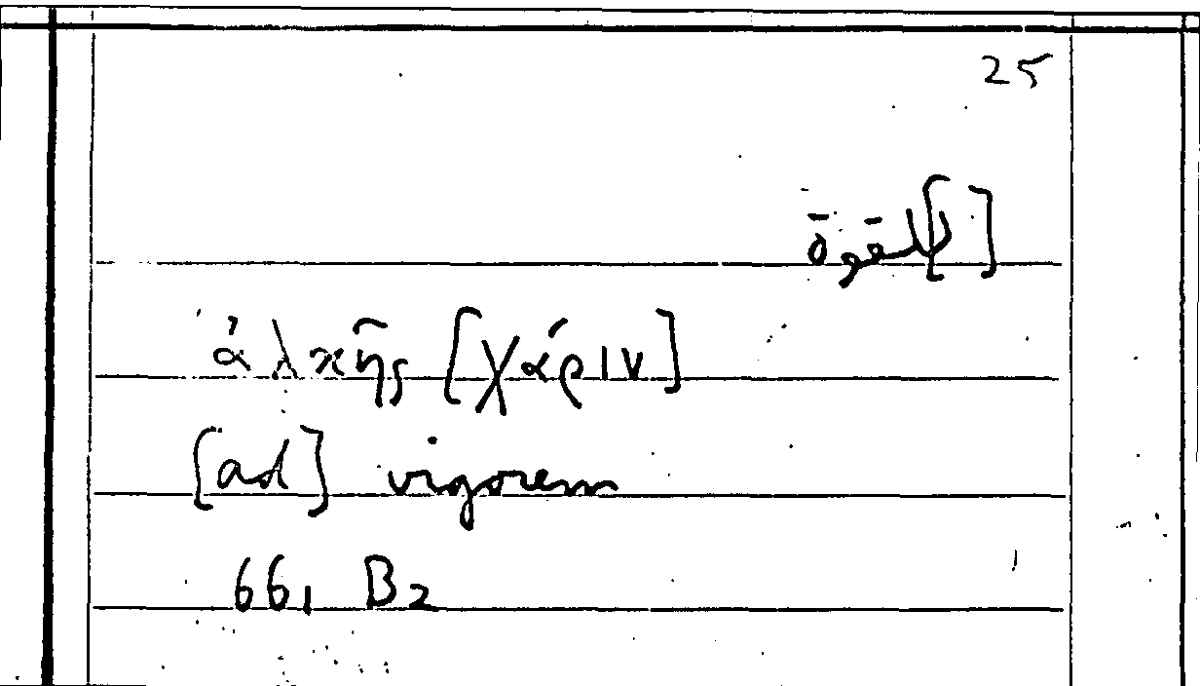 25
ἀλκῆς [χάριν]
[ad] vigorem
66, B2